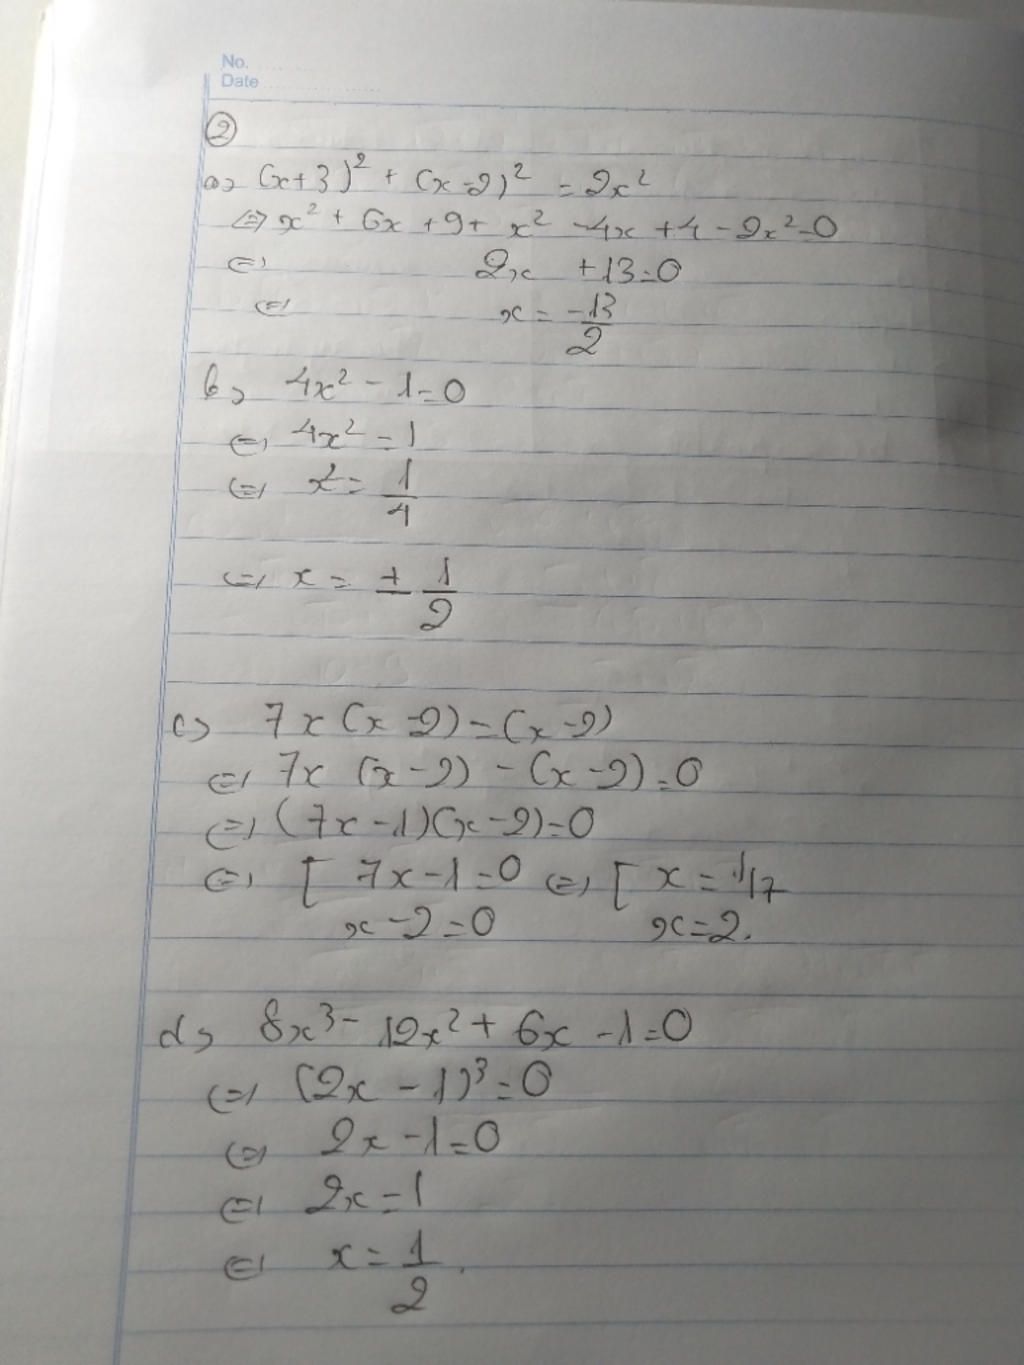 No.
Date
②
a, (x+3)² + (x-2)² = 2x²
⇔ x² + 6x + 9 + x² - 4x + 4 - 2x² = 0
⇔ 2x + 13 = 0
⇔ x = -13/2
b, 4x² - 1 = 0
⇔ 4x² = 1
⇔ x² = 1/4
⇔ x = ± 1/2
c, 7x(x-2) = (x-2)
⇔ 7x (x-2) - (x-2) = 0
⇔ (7x-1)(x-2) = 0
⇔ [ 7x-1=0 ⇔ [ x = 1/7
x-2=0 x=2.
d, 8x³ - 12x² + 6x - 1 = 0
⇔ (2x - 1)³ = 0
⇔ 2x - 1 = 0
⇔ 2x = 1
⇔ x = 1/2.